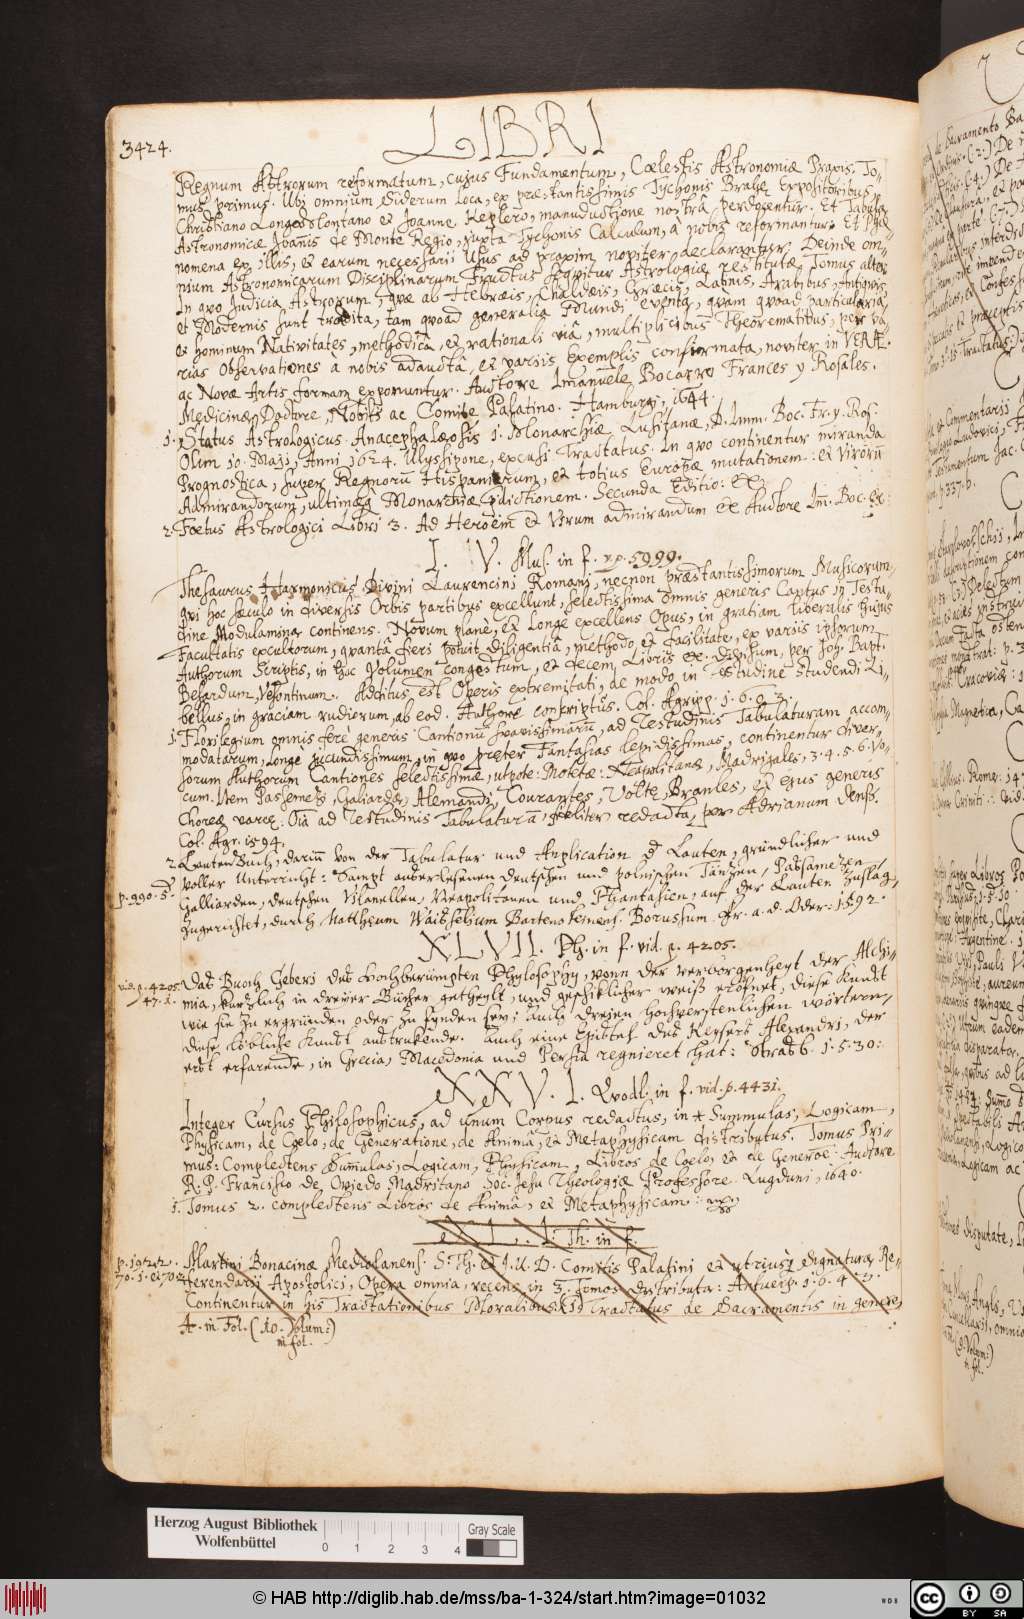 3424.
LIBRI
Regnum Astrorum reformatum, cujus Fundamentum, Cœlestis Astronomiæ Praxis. To-
mus primus. Ubi omnium Siderum loca, ex præstantissimis Tychonis Brahe Expositoribus,
Christiano Longomontano et Joanne Keplero, manuductione nostrâ perdocentur. Et Tabulæ
Astronomicæ Joannis de Monte Regio, juxta Tychonis Calculum, à nobis reformantur. Et Phæ-
nomena ex illis, et earum necessarii Usus ad praxim noviter declarantur. Deinde om-
nium Astronomicarum Disciplinarum Fructus sequitur Astrologiæ restitutæ Tomus alter.
In quo Judicia Astrorum, quæ ab Hebræis, Chaldæis, Græcis, Latinis, Arabibus, Antiquis
et Modernis sunt tradita, tam quoad generalia Mundi eventa, quam quoad particularia
ex hominum Nativitates, methodicâ, et rationali viâ, multiplicibus Theorematibus, per va-
rias Observationes à nobis adauctâ, et variis Exemplis confirmata, noviter in VERÆ
ac Novæ Artis formam exponuntur. Auctore Imanuele Bocarro Frances y Rosales.
Medicinæ Doctore, Nobili ac Comite Palatino. Hamburgi, 1644.
1. Status Astrologicus. Anacephalæosis 1. Monarchiæ Lusitanæ, D. Imm. Boc. Fr. y. Ros.
Olim 10. Maji, Anni 1624. Ulyssipone, excusi Tractatus. In quo continentur miranda
Prognostica, super Regnorū Hispaniarum, et totius Europæ mutationem: et Virorū
Admirandorum, ultimæq Monarchiæ prædictionem. Secunda Editio: &c.
2. Foetus Astrologici Libri 3. Ad Heroëm et Virum admirandum &c Auctore Im. Boc. &c:
I. V. Mus. in f. p. 5999.
Thesaurus Harmonicus Divini Laurencini Romani, necnon præstantissimorum Musicorum,
qui hoc sæculo in diversis Orbis partibus excellunt, selectissima omnis generis Cantus in Testu-
dine Modulamina continens. Novum planè, et longè excellens Opus, in gratiam liberalis hujus
Facultatis excultorum, quantâ fieri potuit diligentiâ, methodo, et facilitate, ex variis ipsorum
Authorum Scriptis, in hoc Volumen congestum, et decem Libris &c. divisum, per Joh. Bapt.
Besardum, Vesontinum. Additus est Operis extremitati, de modo in Testudine studendi Li-
bellus, in gratiam rudiorum, ab eod. Authore conscriptus. Col. Agripp. 1.6.0.3.
1. Florilegium omnis ferè generis Cantionū suavissimarū, ad Testudinis Tabulaturam accom-
modatarum, longè jucundissimum, in quo præter Fantasias lepidissimas, continentur diver-
sorum Authorum Cantiones selectissimæ, utpote: Motetæ: Neapolitanæ, Madrigales, 3.4.5.6. Vo-
cum. Item Passemezi, Galiardæ, Alemandi, Courantes, Volte, Branles, et ejus generis
Choreæ variæ: Oīa ad Testudinis Tabulaturā, fideliter redacta, per Adrianum Denss.
Col. Agr. 1594.
2. Lautenbuch, darin von der Tabulatur und Application der Lauten, gründlicher und
p. 990. 5.
voller Unterricht: Sampt außerlesenen Deutschen und Polnischen Täntzen, Passamezen
Galliarden, Deutschen Vilanellen, Neapolitanen und Phantasien, auf der Lauten zuschlag.
zugerichtet, durch Matthæum Waisselium Bartensteinens. Borussum. Fr. a. d. Oder: 1592.
XLVII. Ph. in f. vid. p. 4205.
vid. p. 4205.
47. 1.
Das Buch Geberi des hochberümpten Phylosophy, von der verborgenheyt der Alchi-
mia, kurtzlich in dreyer Bücher getheylt, und geschicklicher weiß eröfnet, diese Kunst
wie sie zu ergründen oder zu fynden sey: auch dreyen hochverstentlichen wörtern
diese löbliche Kunst außtrukende. Auch eine Epistel des Keysers Alexandri, der
erst erfarende, in Grecia, Macedonia und Persia regnieret hat: Straßb. 1.5.30:
XXV. 1. Quodl. in f. vid. p. 4431.
Integer Cursus Philosophicus, ad unum Corpus redactus, in Summulas, Logicam,
Physicam, de Cœlo, de Generatione, de Anima, et Metaphysicam distributus. Tomus Pri-
mus: Complectens Sumulas, Logicam, Physicam, Libros de Cœlo, et de Generōe. Auctore
R. P. Francisco de Oviedo Madritano Soc. Jesu Theologiæ Professore. Lugduni, 1640.
1. Tomus 2. complectens Libros de Animâ, et Metaphysicam:
Th. in f.
Martini Bonacinæ Mediolanens. S. Th. et J. U. D. Comitis Palatini et utriusq Signaturæ Re-
ferendarii Apostolici, Opera omnia, recens in 3. Tomos distributa: Antuerp.
Continentur in his Tractationibus Moralibus Tractatus de Sacramentis in genere,
4. in Fol. (10. Volum:)
in fol.
Herzog August Bibliothek
Wolfenbüttel
0 1 2 3 4
Gray Scale
© HAB http://diglib.hab.de/mss/ba-1-324/start.htm?image=01032
WDB
cc BY SA